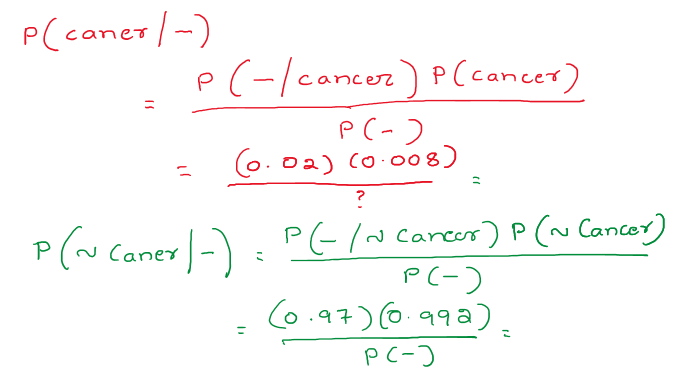 P(caner/-)
= P(-/cancer) P(cancer)
P(-)
= (0.02) (0.008) =
?
P(~ caner|-) = P(-/~ cancer) P(~ Cancer)
P(-)
= (0.97)(0.992) =
P(-)